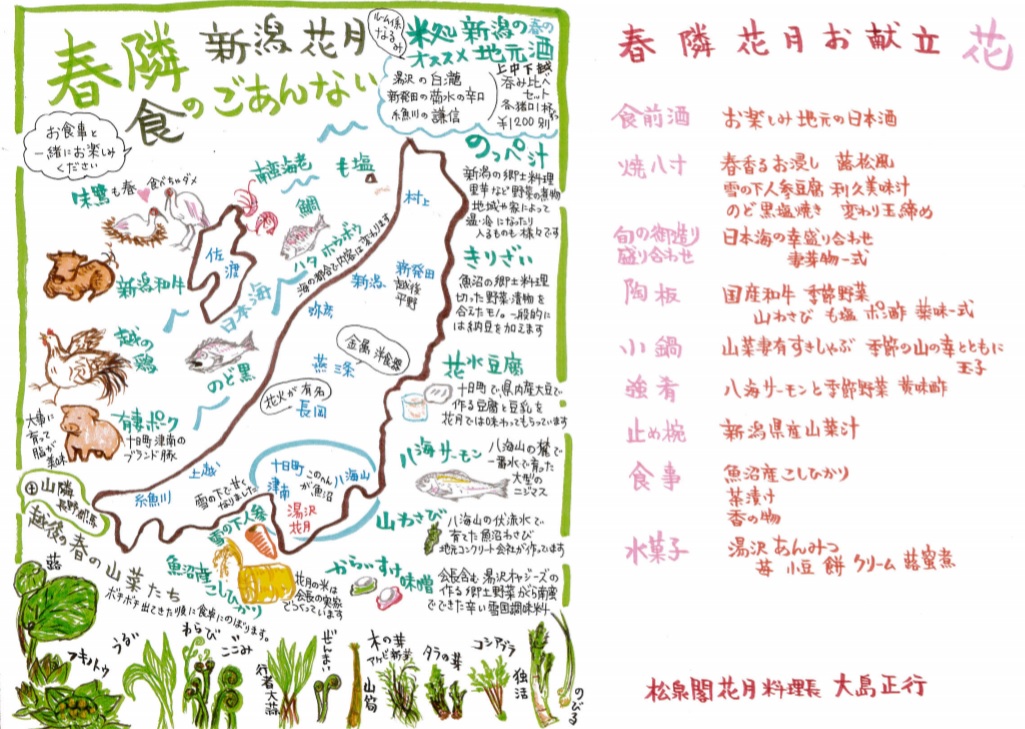 春隣 新潟 花月
食のごあんない
お食事と
一緒にお楽しみ
ください
米処 新潟の春の
オススメ 地元酒
湯沢の白瀧
新発田の菊水の辛口
糸魚川の謙信
上中下越
呑み比べ
セット
各猪口1杯
¥1200別
のっぺ汁
新潟の郷土料理
里芋など野菜の煮物
地域や家によって
温・冷になったり
入るものも様々です
きりざい
魚沼の郷土料理
切った野菜・漬物を
合えたモノ。一般的に
は納豆を加えます
花水豆腐
十日町で、県内産大豆で
作る豆腐と豆乳を
花月では味わってもらっています
八海サーモン
八海山の麓で
一番水で育った
大型の
ニジマス
山わさび
八海山の伏流水で
育てた魚沼わさび
地元コンクリート会社が作ってます
からいすけ味噌
会長含む湯沢キャジーズの
作る郷土野菜がら南蛮
でできた辛い雪国調味料
南蛮海老
も塩
鯛
ハタ ホウボウ
海の都合で内容は変わります
味鷺も春
食べちゃダメ
新潟和牛
越の鶏
のど黒
有妻ポーク
十日町 津南の
ブランド豚
大事に
育って
脂が
美味
佐渡
日本海
村上
新潟
新発田
越後
平野
弥彦
燕 三条
金属 洋食器
花火が有名
長岡
上越
糸魚川
十日町
津南
このへん
が魚沼
八海山
湯沢
花月
雪の下で甘く
なりました
雪の下人参
魚沼産
こしひかり
花月の米は
会長の実家
でつくっています
山隣
長野 群馬
越後の春の山菜たち
ポチポチ出てきたり順に食卓にのぼります。
蕗
フキノトウ
うるい
わらび
こごみ
行者大蒜
ぜんまい
山筍
木の芽
アケビ新芽
タラの芽
コシアブラ
独活
のびる
春隣 花月お献立 花
食前酒 お楽しみ 地元の日本酒
焼八寸 春香るお浸し 蕗松風
雪の下人参豆腐 利久美味汁
のど黒塩焼き 変わり玉締め
旬の御造り 日本海の幸盛り合わせ
盛り合わせ 妻芽物一式
陶板 国産和牛 季節野菜
山わさび も塩 ポン酢 薬味一式
小鍋 山菜妻有すきしゃぶ 季節の山の幸とともに
玉子
強肴 八海サーモンと季節野菜 黄味酢
止め椀 新潟県産山菜汁
食事 魚沼産こしひかり
菜漬け
香の物
水菓子 湯沢あんみつ
苺 小豆 餅 クリーム 蕗蜜煮
松泉閣花月料理長 大島正行